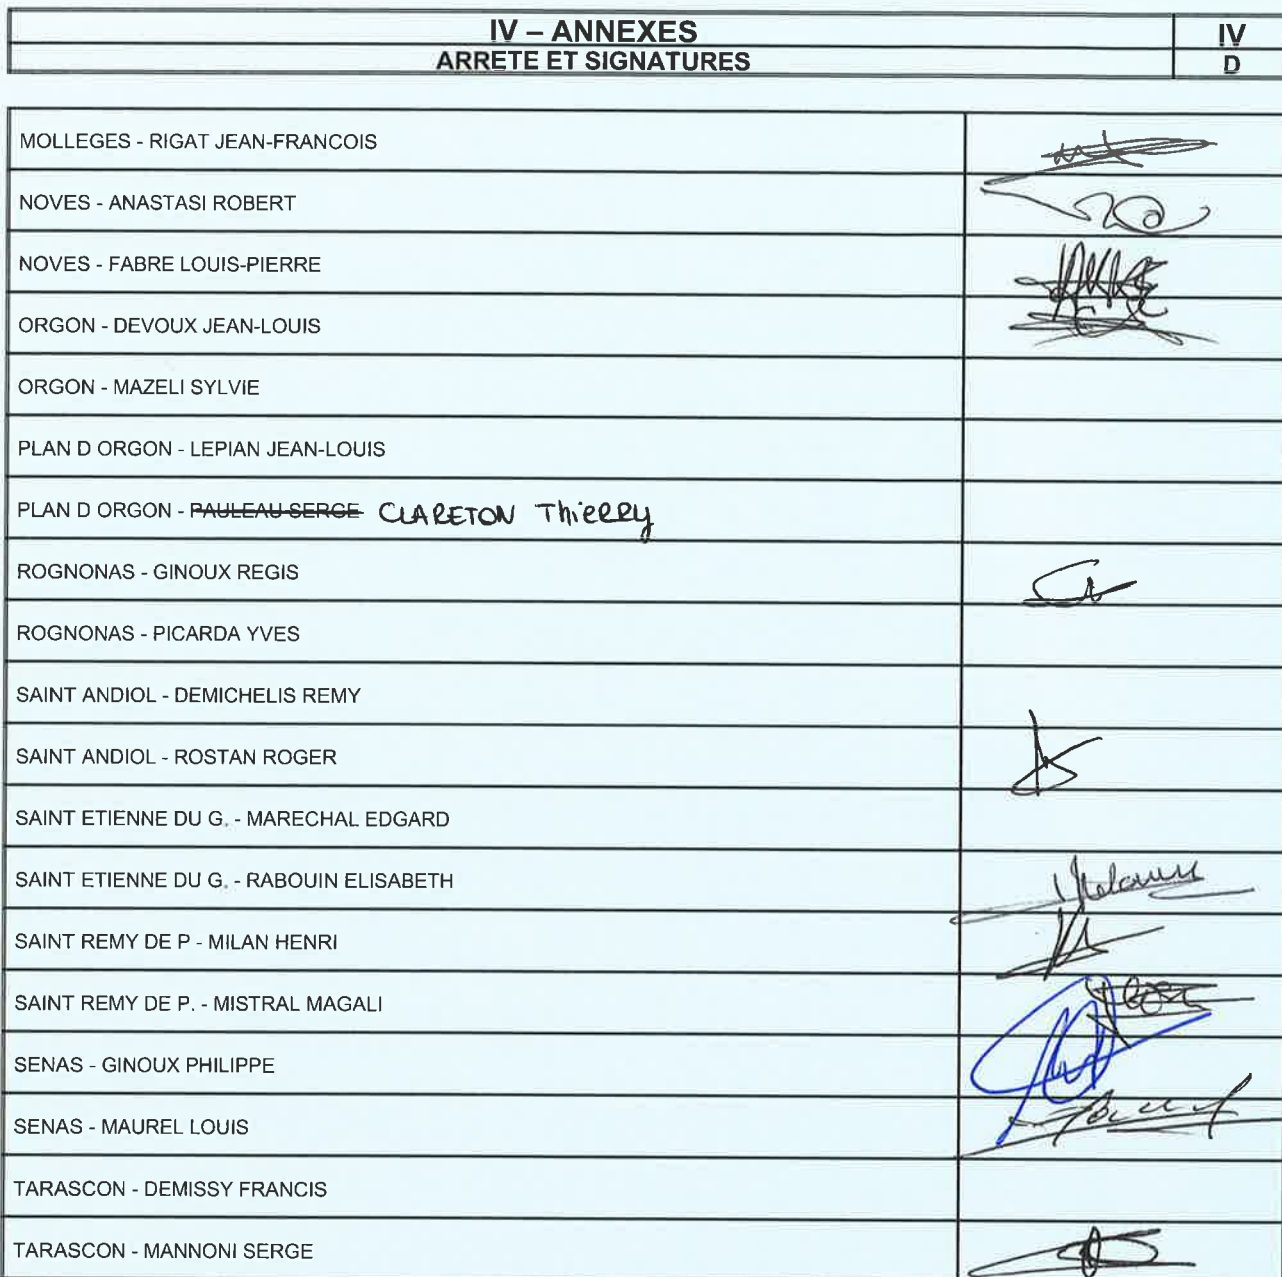 IV – ANNEXES
IV
ARRETE ET SIGNATURES
D
MOLLEGES - RIGAT JEAN-FRANCOIS
NOVES - ANASTASI ROBERT
NOVES - FABRE LOUIS-PIERRE
ORGON - DEVOUX JEAN-LOUIS
ORGON - MAZELI SYLVIE
PLAN D ORGON - LEPIAN JEAN-LOUIS
PLAN D ORGON - PAULEAU SERGE CLARETON Thierry
ROGNONAS - GINOUX REGIS
ROGNONAS - PICARDA YVES
SAINT ANDIOL - DEMICHELIS REMY
SAINT ANDIOL - ROSTAN ROGER
SAINT ETIENNE DU G. - MARECHAL EDGARD
SAINT ETIENNE DU G. - RABOUIN ELISABETH
SAINT REMY DE P - MILAN HENRI
SAINT REMY DE P. - MISTRAL MAGALI
SENAS - GINOUX PHILIPPE
SENAS - MAUREL LOUIS
TARASCON - DEMISSY FRANCIS
TARASCON - MANNONI SERGE